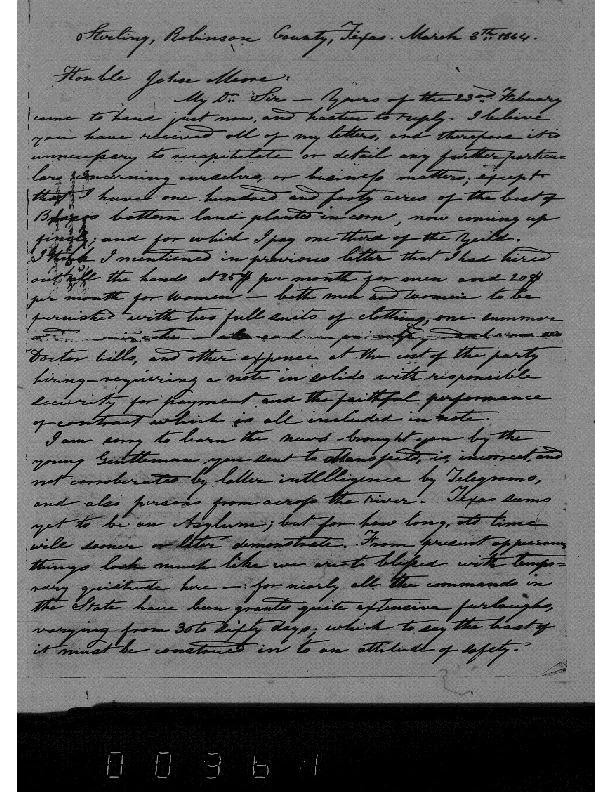 Sterling, Robinson County, Texas. March 8th 1864.
Honble John Moore:
My Dr. Sir — Yours of the 23rd February
came to hand just now, and hasten to reply. I believe
you have received all of my letters, and therefore it is
unnecessary to recapitulate or detail any further particu=
lars concerning ourselves, or business matters; except
that I have one hundred and forty acres of the best of
Brazos bottom land planted in corn, now coming up
finely; and for which I pay one third of the yield.
I think I mentioned in previous letter that I had hired
out all the hands at 25$ per month for men and 20$
per month for women — both men and women to be
furnished with two full suits of clothing, one summer
Doctor bills, and other expense at the cost of the party
hiring — requiring a note in solido with responsible
security for payment and the faithful performance
of contract which is all included in note.
I am sorry to learn the news brought you by the
young Gentleman you sent to Mansfield, is, incorrect, and
not corroberated by latter intelligence by Telegrams,
and also persons from across the river. Texas seems
yet to be an Asylum; but for how long, its time
will sooner or later demonstrate. From present appearan
things look much like we are to blessed with tempo=
rary quietude here — for nearly all the commands in
the State have been granted quite extensive furloughs,
varying from 30 to sixty days; which to say the least of
it must be construed in to an attitude of safety.
00961